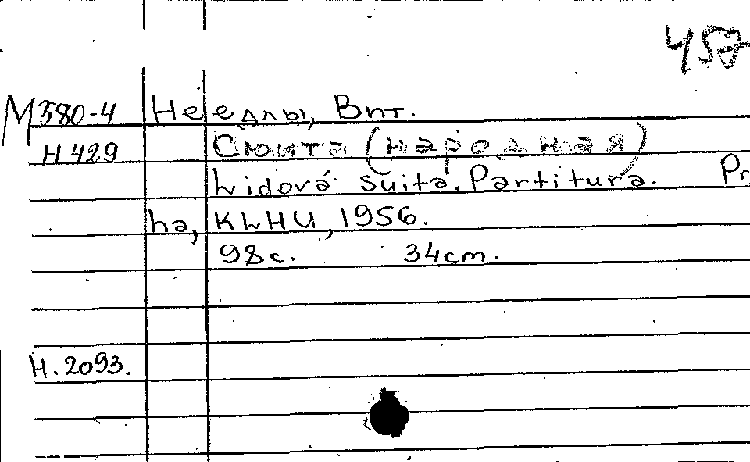 457
М380-4 Неедлы, Вит.
Н429 Сюита (народная)
Lidová suita. Partitura. Pr
ha, KLHU, 1956.
98с. 34cm.
Н.2093.